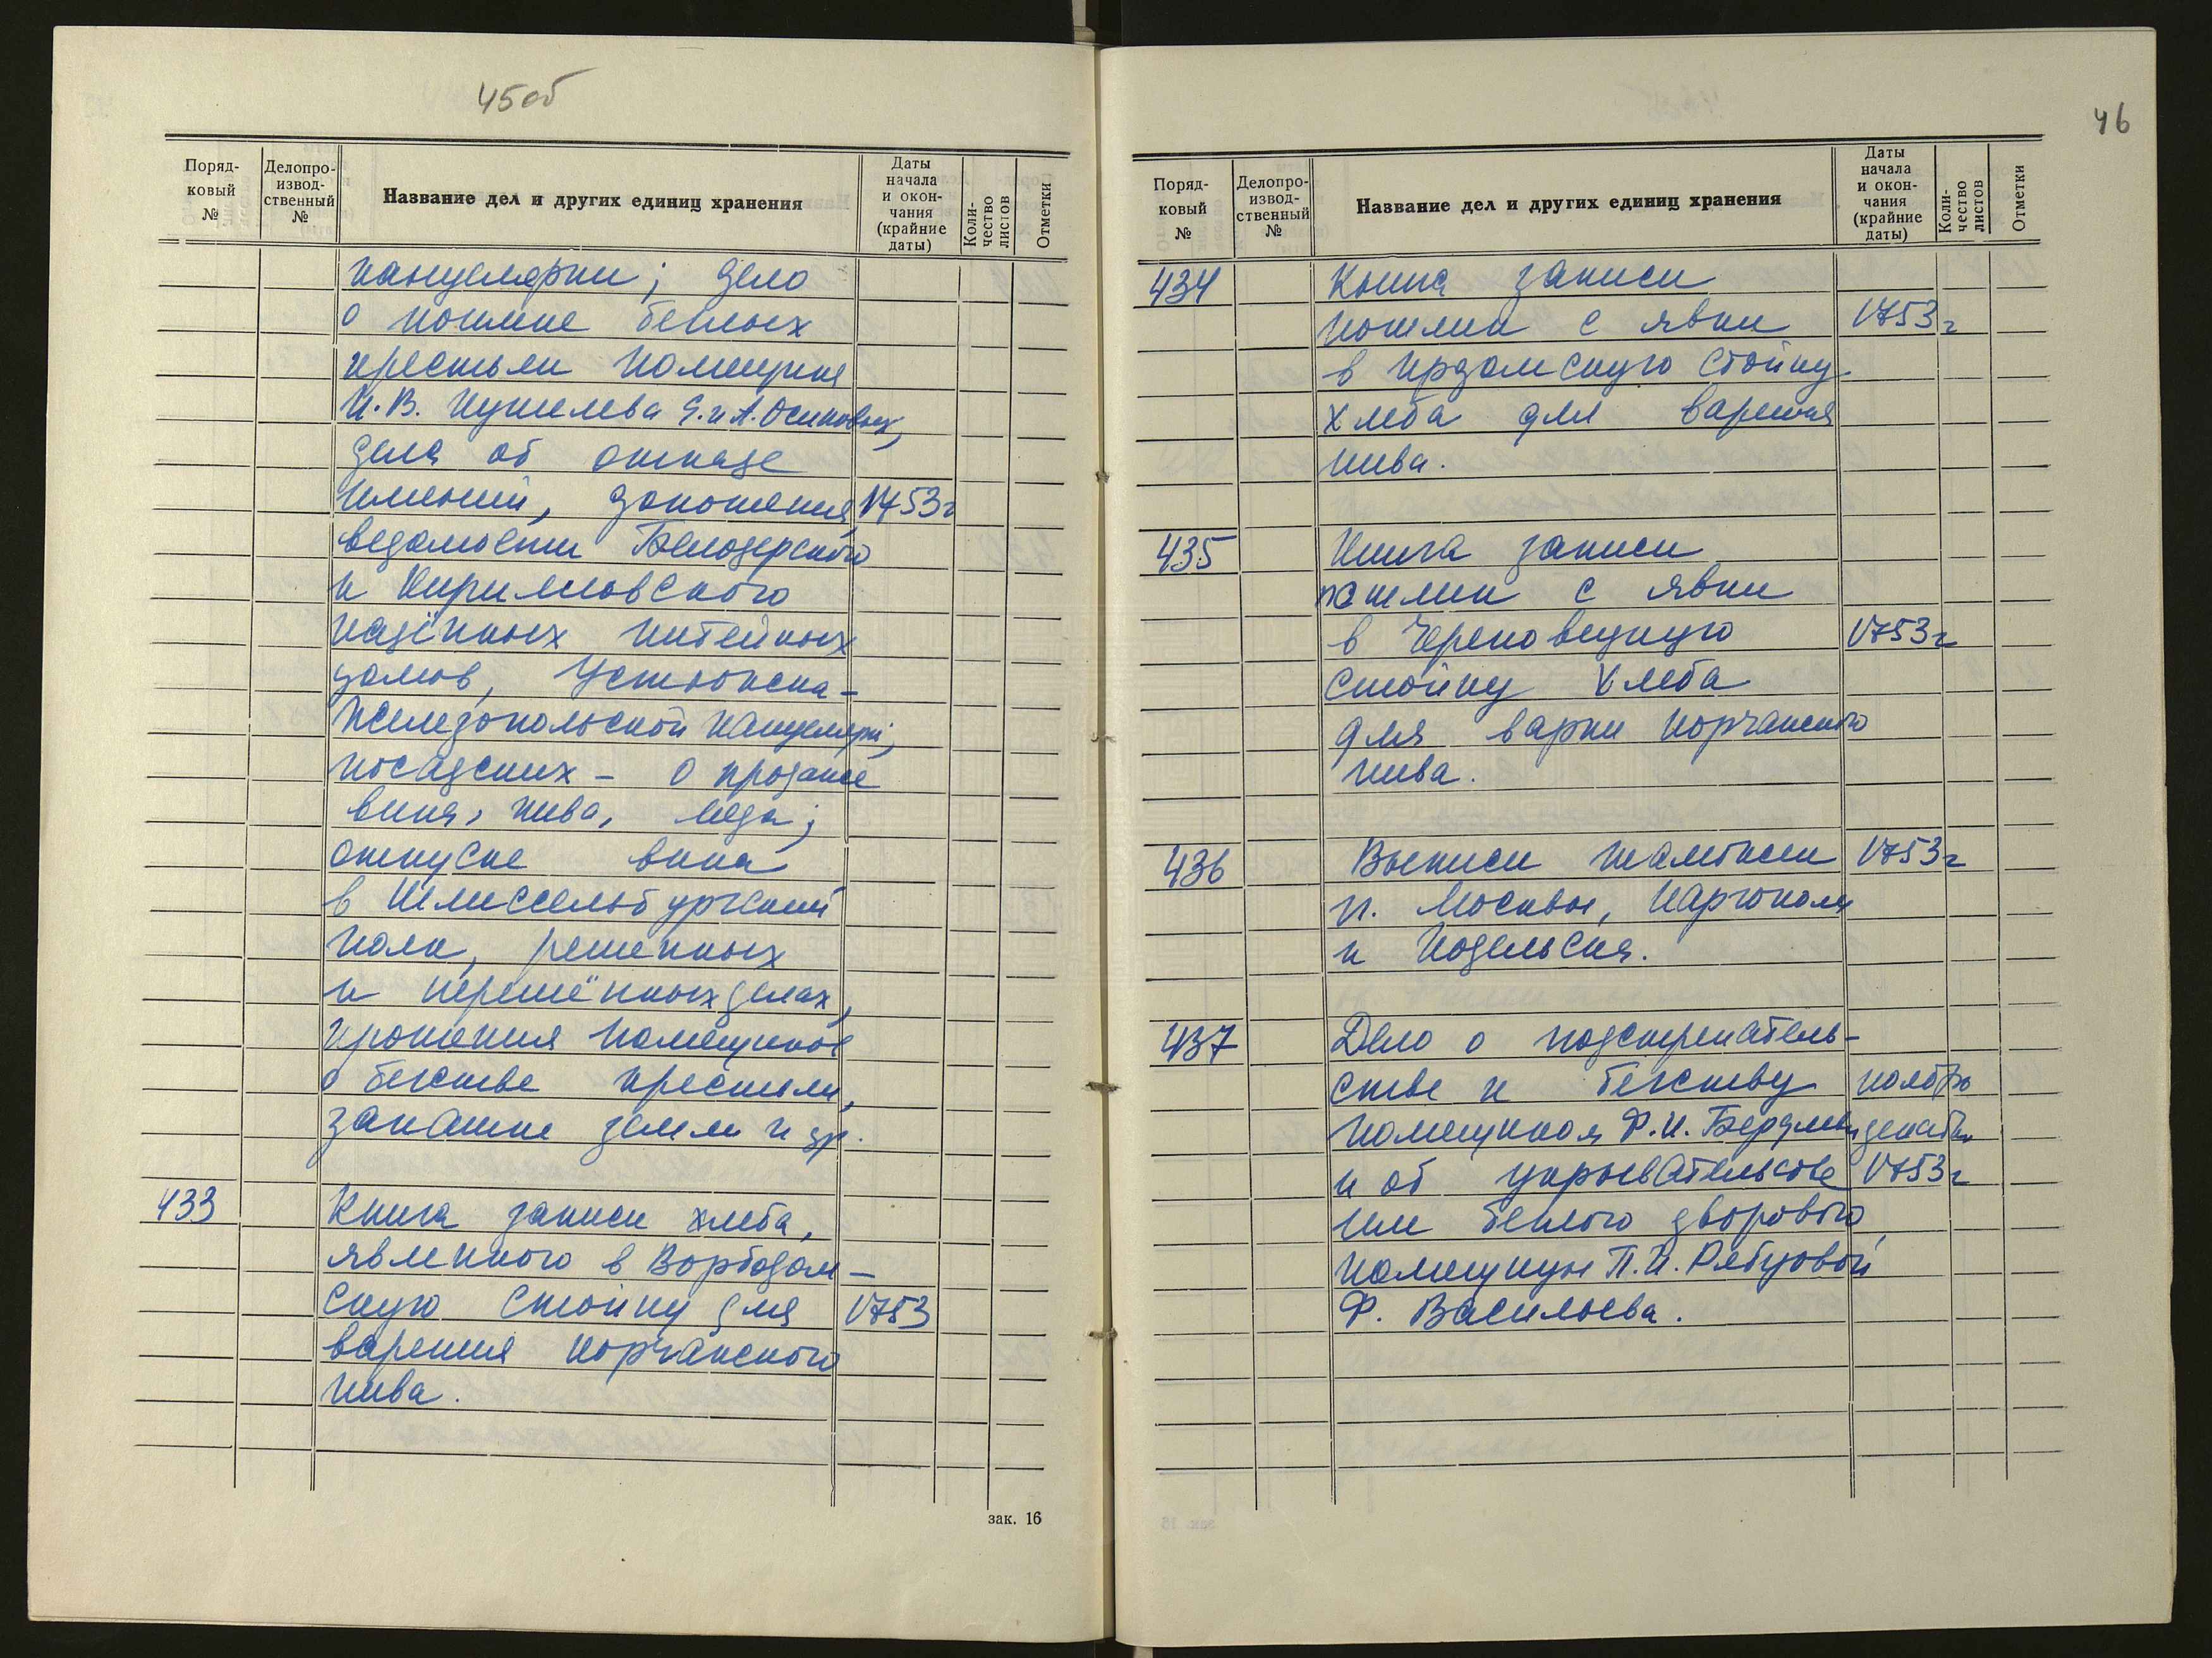 45об
Поряд-
ковый
№
Делопро-
извод-
ственный
№
Название дел и других единиц хранения
Даты
начала
и окон-
чания
(крайние
даты)
Коли-
чество
листов
Отметки
канцелярии; дело
о поимке беглых
крестьян помещика
И.В. Кушелева Е. и А. Осиповых,
дела об отказе
имений, доношения, 1753г
ведомости Белозерского
и Кирилловского
казённых питейных
домов, Устюжена-
Железопольской канцелярии,
посадских - о продаже
вина, пива, меда;
отпуске вина
в Шлиссельбургский
полк, решенных
и нерешённых делах,
прошения помещиков
о бегстве крестьян,
запашке земли и др.
433 Книга записи хлеба,
явленного в Ворбозом-
скую стойку для 1753
варения корчажного
пива.
зак. 16
46
Поряд-
ковый
№
Делопро-
извод-
ственный
№
Название дел и других единиц хранения
Даты
начала
и окон-
чания
(крайние
даты)
Коли-
чество
листов
Отметки
434 Книга записи
пошлин с явки 1753г
в Ирдомскую стойку
хлеба для варения
пива.
435 Книга записи
пошлин с явки
в Череповецкую 1753г
стойку хлеба
для варки корчажного
пива.
436 Выписи таможен 1753г
гг. Москвы, Каргополя
и Козельска.
437 Дело о подстрекатель-
стве к бегству ноябрь
помещиком Ф.И. Бердяевым декабрь
и об укрывательстве 1753г
им беглого дворового
помещицы П.И. Рябцовой
Ф. Васильева.